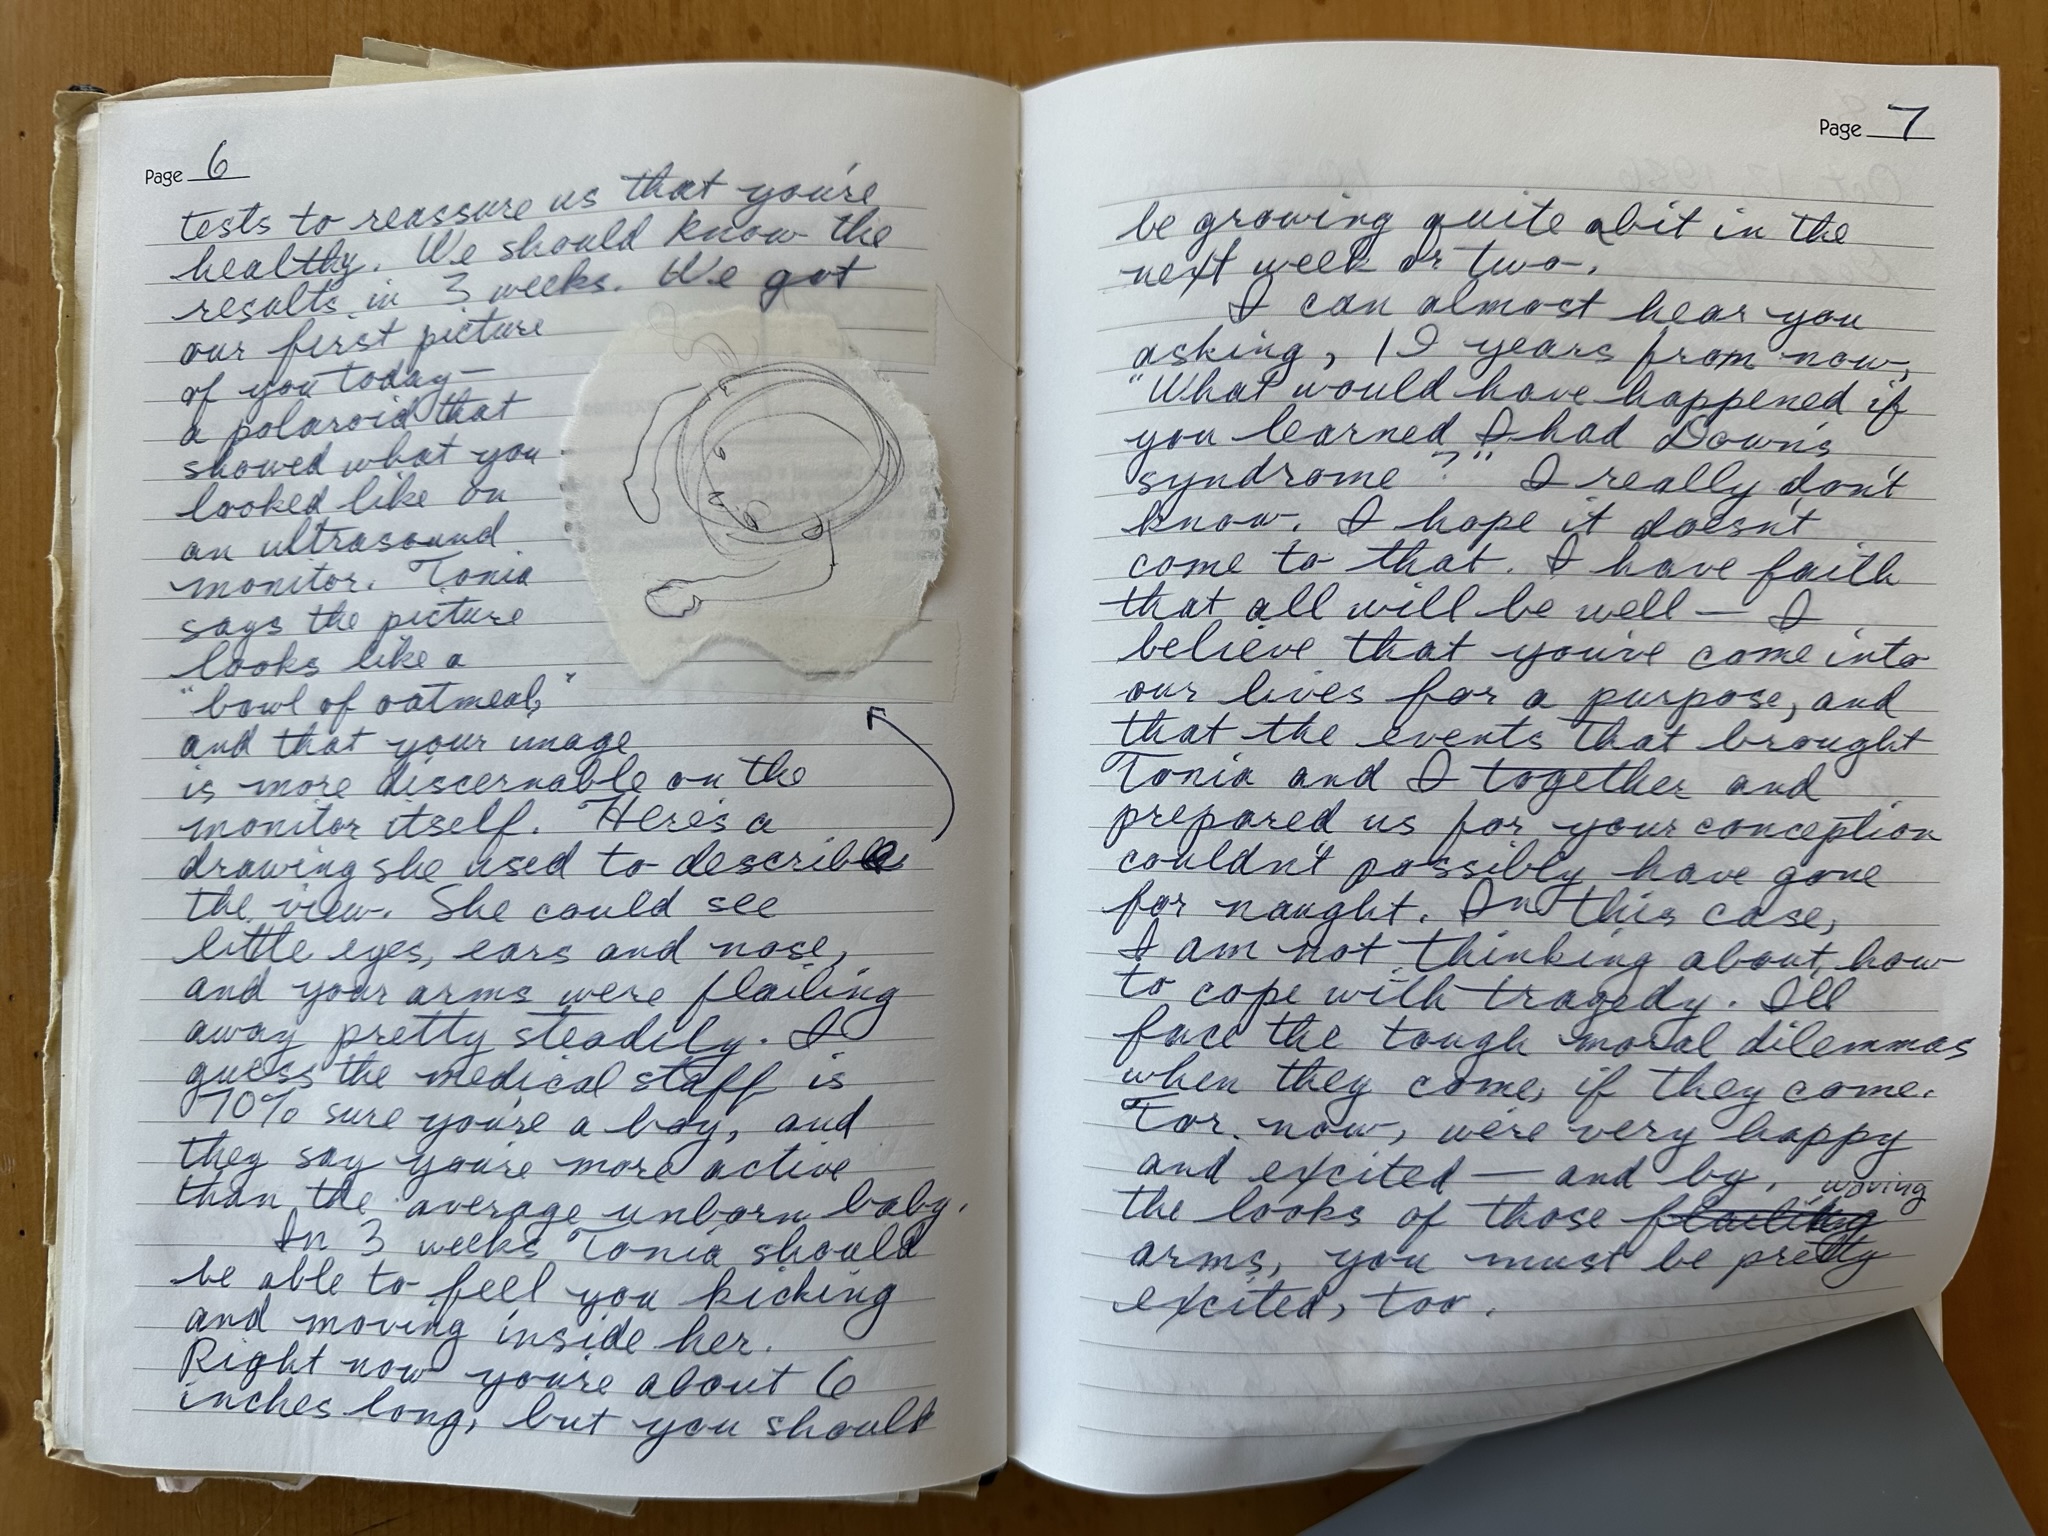 Page 6
tests to reassure us that you're
healthy. We should know the
results in 3 weeks. We got
our first picture
of you today—
a polaroid that
showed what you
looked like on
an ultrasound
monitor. Tonia
says the picture
looks like a
"bowl of oatmeal,"
and that your image
is more discernable on the
monitor itself. Here's a
drawing she used to describe
the view. She could see
little eyes, ears and nose,
and your arms were flailing
away pretty steadily. I
guess the medical staff is
70% sure you're a boy, and
they say you're more active
than the average unborn baby.
In 3 weeks Tonia should
be able to feel you kicking
and moving inside her.
Right now you're about 6
inches long, but you should
Page 7
be growing quite abit in the
next week or two.
I can almost hear you
asking, 19 years from now,
"What would have happened if
you learned I had Down's
syndrome?" I really don't
know. I hope it doesn't
come to that. I have faith
that all will be well — I
believe that you've come into
our lives for a purpose, and
that the events that brought
Tonia and I together and
prepared us for your conception
couldn't possibly have gone
for naught. In this case,
I am not thinking about how
to cope with tragedy. I'll
face the tough moral dilemmas
when they come, if they come.
For now, we're very happy
and excited — and by
the looks of those flailing waving
arms, you must be pretty
excited, too.